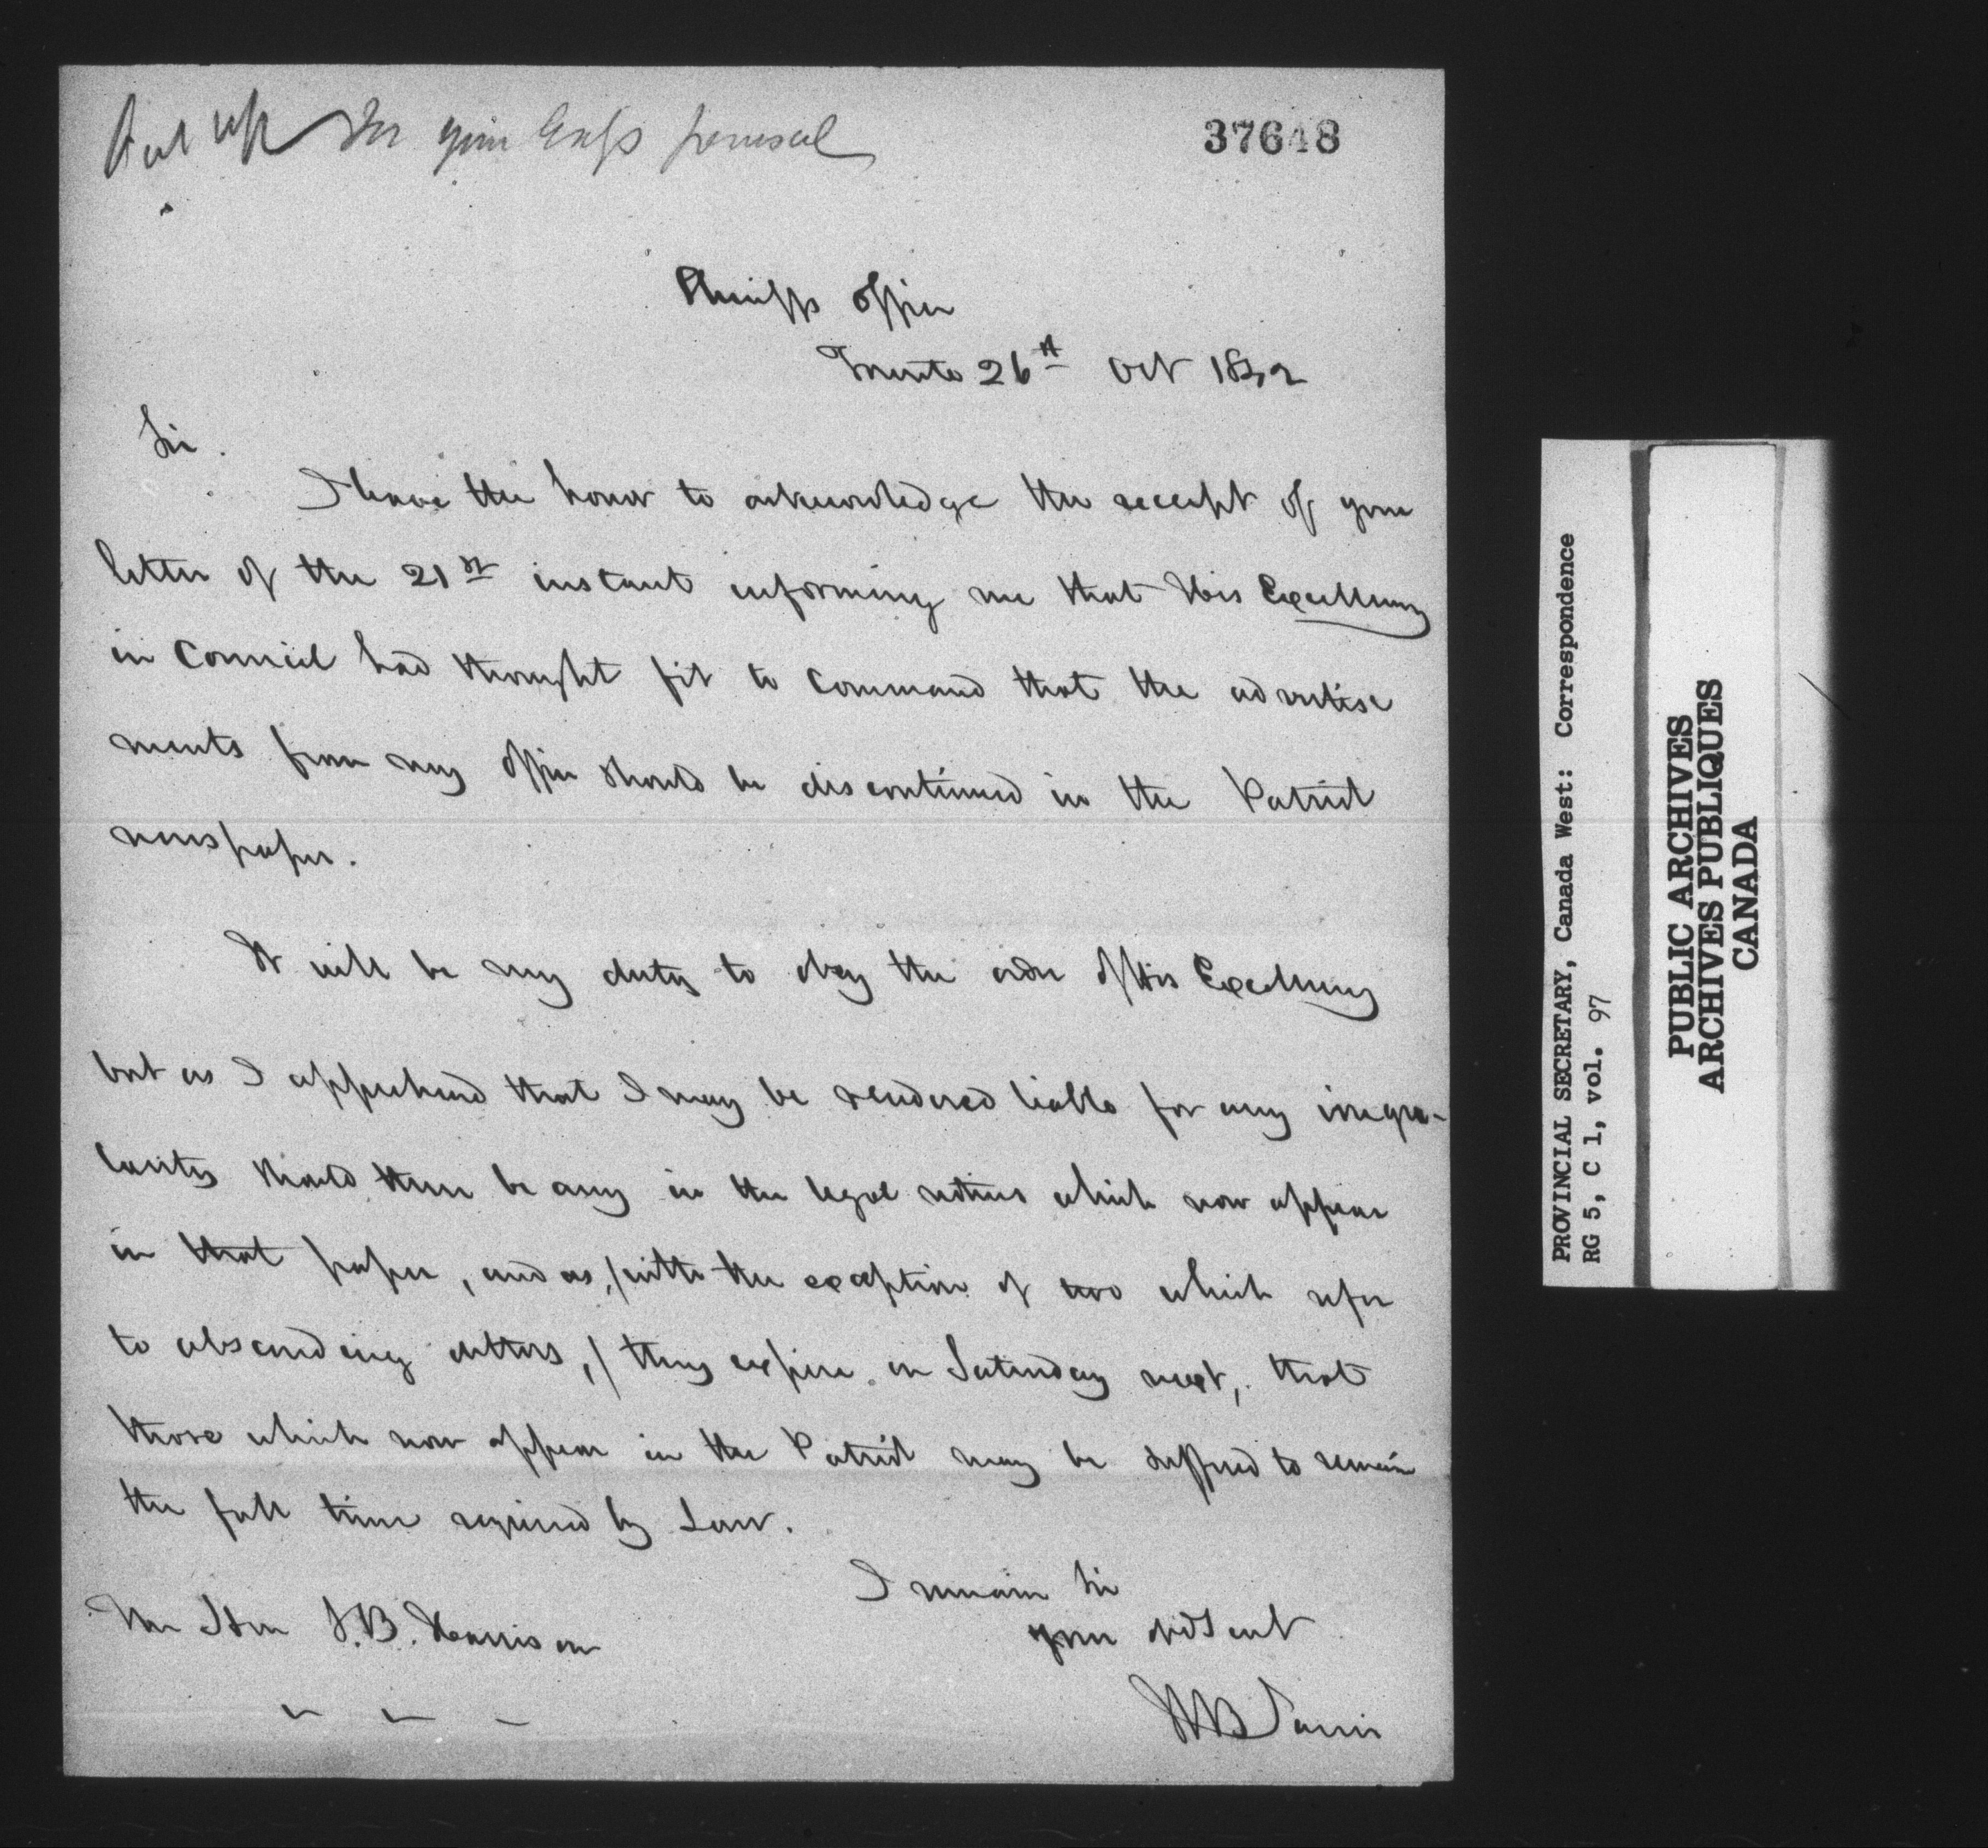 Put up for your Exc's perusal
37648
Sheriff's Office
Toronto 26th Oct 1842
Sir.
I have the honor to acknowledge the receipt of your
letter of the 21st instant informing me that His Excellency
in Council had thought fit to command that the advertise
ments from my office should be discontinued in the Patriot
newspaper.
It will be my duty to obey the order of His Excellency
but as I apprehend that I may be rendered liable for any irregu-
larity should there be any in the legal notices which now appear
in that paper, and as, (with the exception of two which refer
to absconding debtors,) they expire on Saturday next, that
those which now appear in the Patriot may be suffered to remain
the full time required by Law.
I remain Sir
your obdt Servt
WB Jarvis
The Hon S.B. Harrison
PROVINCIAL SECRETARY, Canada West: Correspondence
RG 5, C 1, vol. 97
PUBLIC ARCHIVES
ARCHIVES PUBLIQUES
CANADA